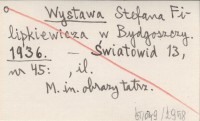 Wystawa Stefana Fi-
lipkiewicza w Bydgoszczy.
1936. — Światowid 13,
nr 45: il.
M. in. obrazy tatrz.
1958